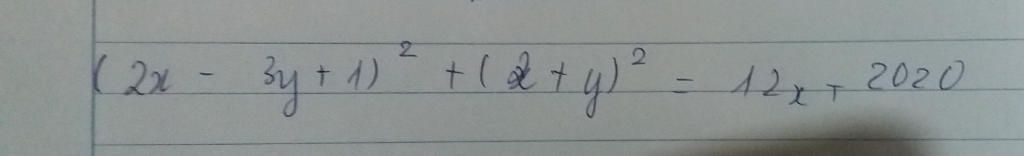 (2x - 3y + 1)² + (x + y)² = 12x + 2020